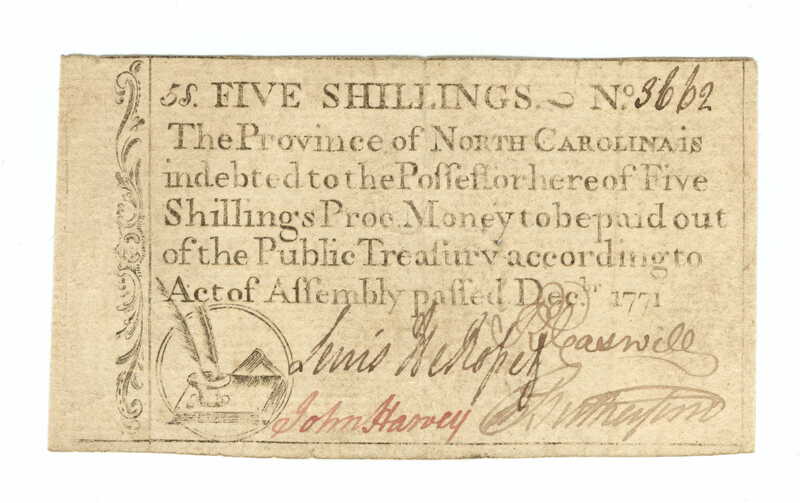 5s. FIVE SHILLINGS. No. 3662
The Province of NORTH CAROLINA is
indebted to the Poſſeſſor hereof Five
Shillings Proc. Money to be paid out
of the Public Treaſury according to
Act of Aſſembly paſſed Decbr. 1771
Lewis De Roſset R Caswell
John Harvey J Rutherfurd